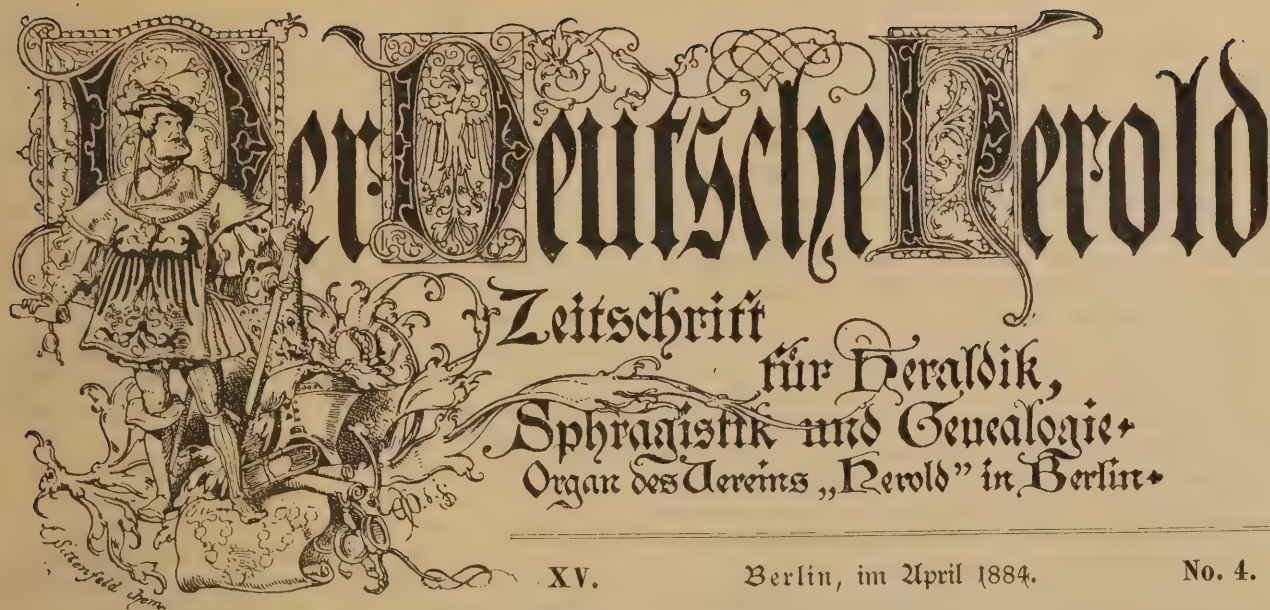 Der Deutsche Herold
Zeitschrift
für Heraldik,
Sphragistik und Genealogie.
Organ des Vereins „Herold” in Berlin.
XV. Berlin, im April 1884. No. 4.